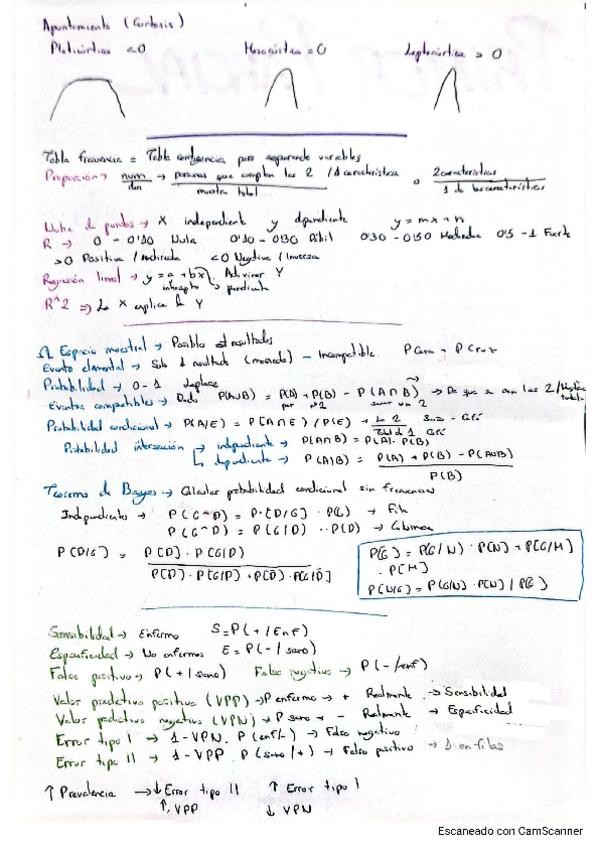 Apuntamiento (Curtosis)
Platicúrtica <0 Mesocúrtica = 0 Leptocúrtica > 0
Tabla frecuencia = Tabla contigencia pero separando variables
Proporción → num / den → personas que cumplen las 2 / 1 característica / muestra total o 2 características / 1 de las características
Nube de puntos → X independient y dependiente y = mx + n
R → 0 - 0'10 Nula 0'10 - 0'30 Débil 0'30 - 0'50 Moderada 0'5 - 1 Fuerte
>0 Positiva / <0 Negativa / Inversa
Regresión lineal → y = a + bx Adivinar Y
intercepto pendiente
R^2 => La X explica la Y
Ω Espacio muestral → Posibles resultados
Evento elemental → Solo 1 resultado (moneda) - Incompatible P Cara + P Cruz
Probabilidad → 0 - 1
Eventos compatibles → Dado P(A∪B) = P(A) + P(B) - P(A∩B) → De que se den las 2 /
par nº2
Probabilidad condicional → P(A/E) = P(A∩E) / P(E) →
Probabilidad intersección → independiente → P(A∩B) = P(A) · P(B)
dependiente → P(A/B) = P(A) + P(B) - P(A∪B) / P(B)
Teorema de Bayes → Calcular probabilidad condicional sin frecuencias
Independientes → P(G^D) = P(D/G) · P(G) → Fila
P(G^D) = P(G/D) · P(D) → Columna
P(D/G) = P(D) · P(G/D) / P(D) · P(G/D) + P(D̄) · P(G/D̄)
P(G) = P(G/N) · P(N) + P(G/H)
· P(H)
P(N/G) = P(G/N) · P(N) / P(G)
Sensibilidad → Enfermo S = P(+/Enf)
Especificidad → No enfermos E = P(-/sano)
Falso positivo → P(+/sano) Falso negativo → P(-/enf)
Valor predictivo positivo (VPP) → P enfermo → + Realmente → Sensibilidad
Valor predictivo negativo (VPN) → P sano → - Realmente → Especificidad
Error tipo I → 1 - VPN. P(enf/-) → Falso negativo
Error tipo II → 1 - VPP P(sano/+) → Falso positivo → 1 en filas
↑ Prevalencia → ↓ Error tipo II ↑ Error tipo I
↑ VPP ↓ VPN
Escaneado con CamScanner